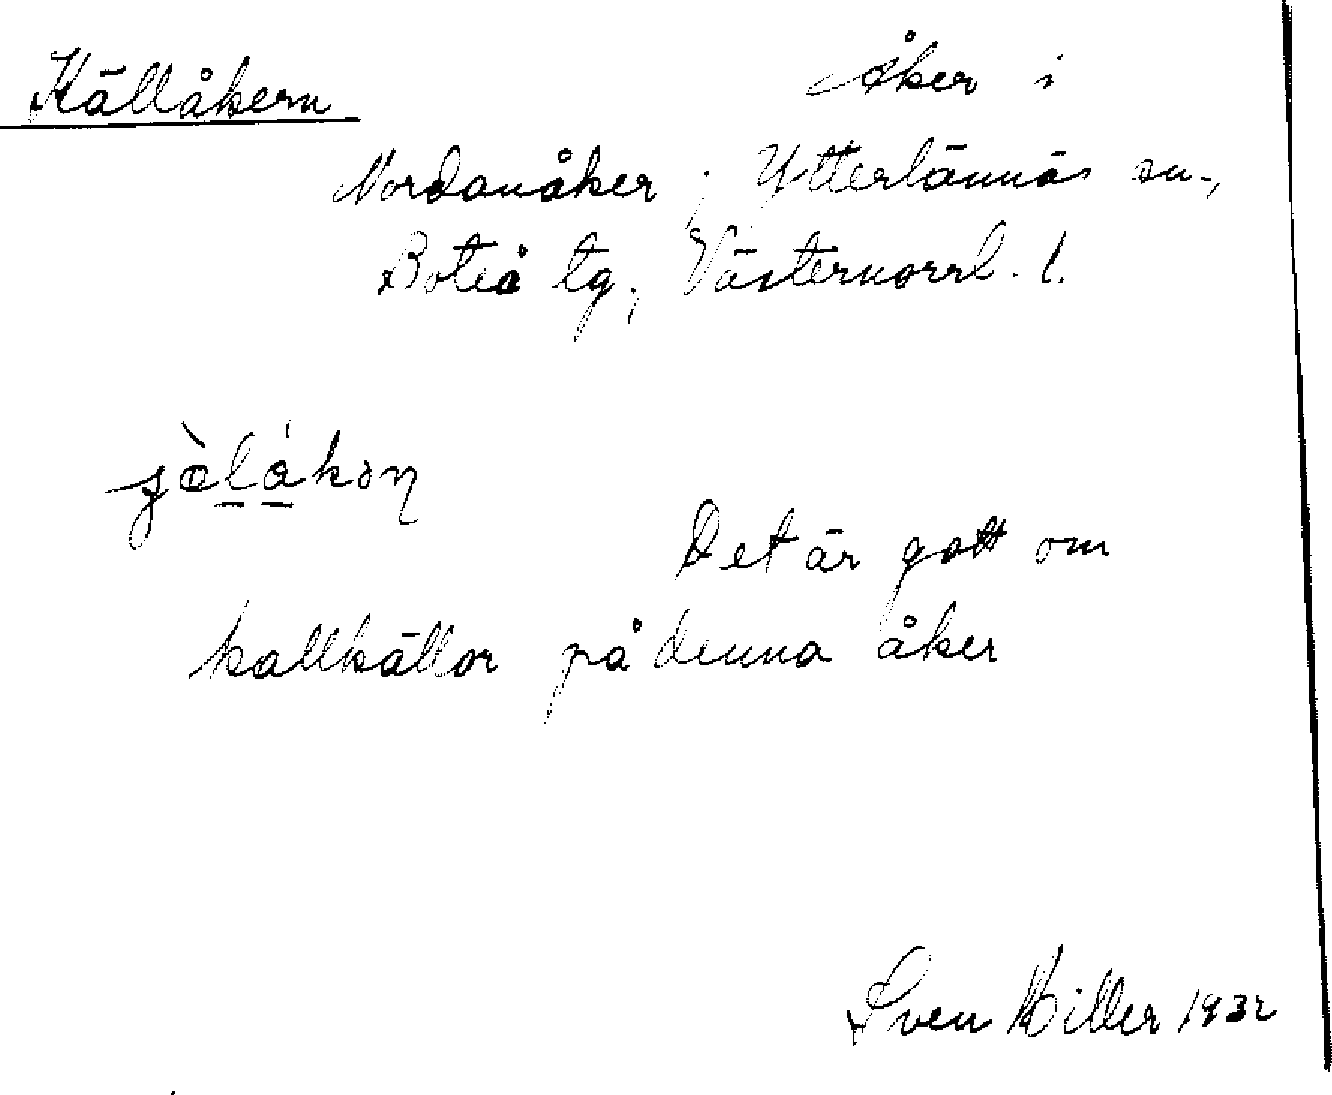 Källåkern
Åker i
Nordanåker, Ytterlännäs sn.,
Boteå tg, Västernorrl. l.
Det är gott om
kallkällor på denna åker
Sven Hiller 1932